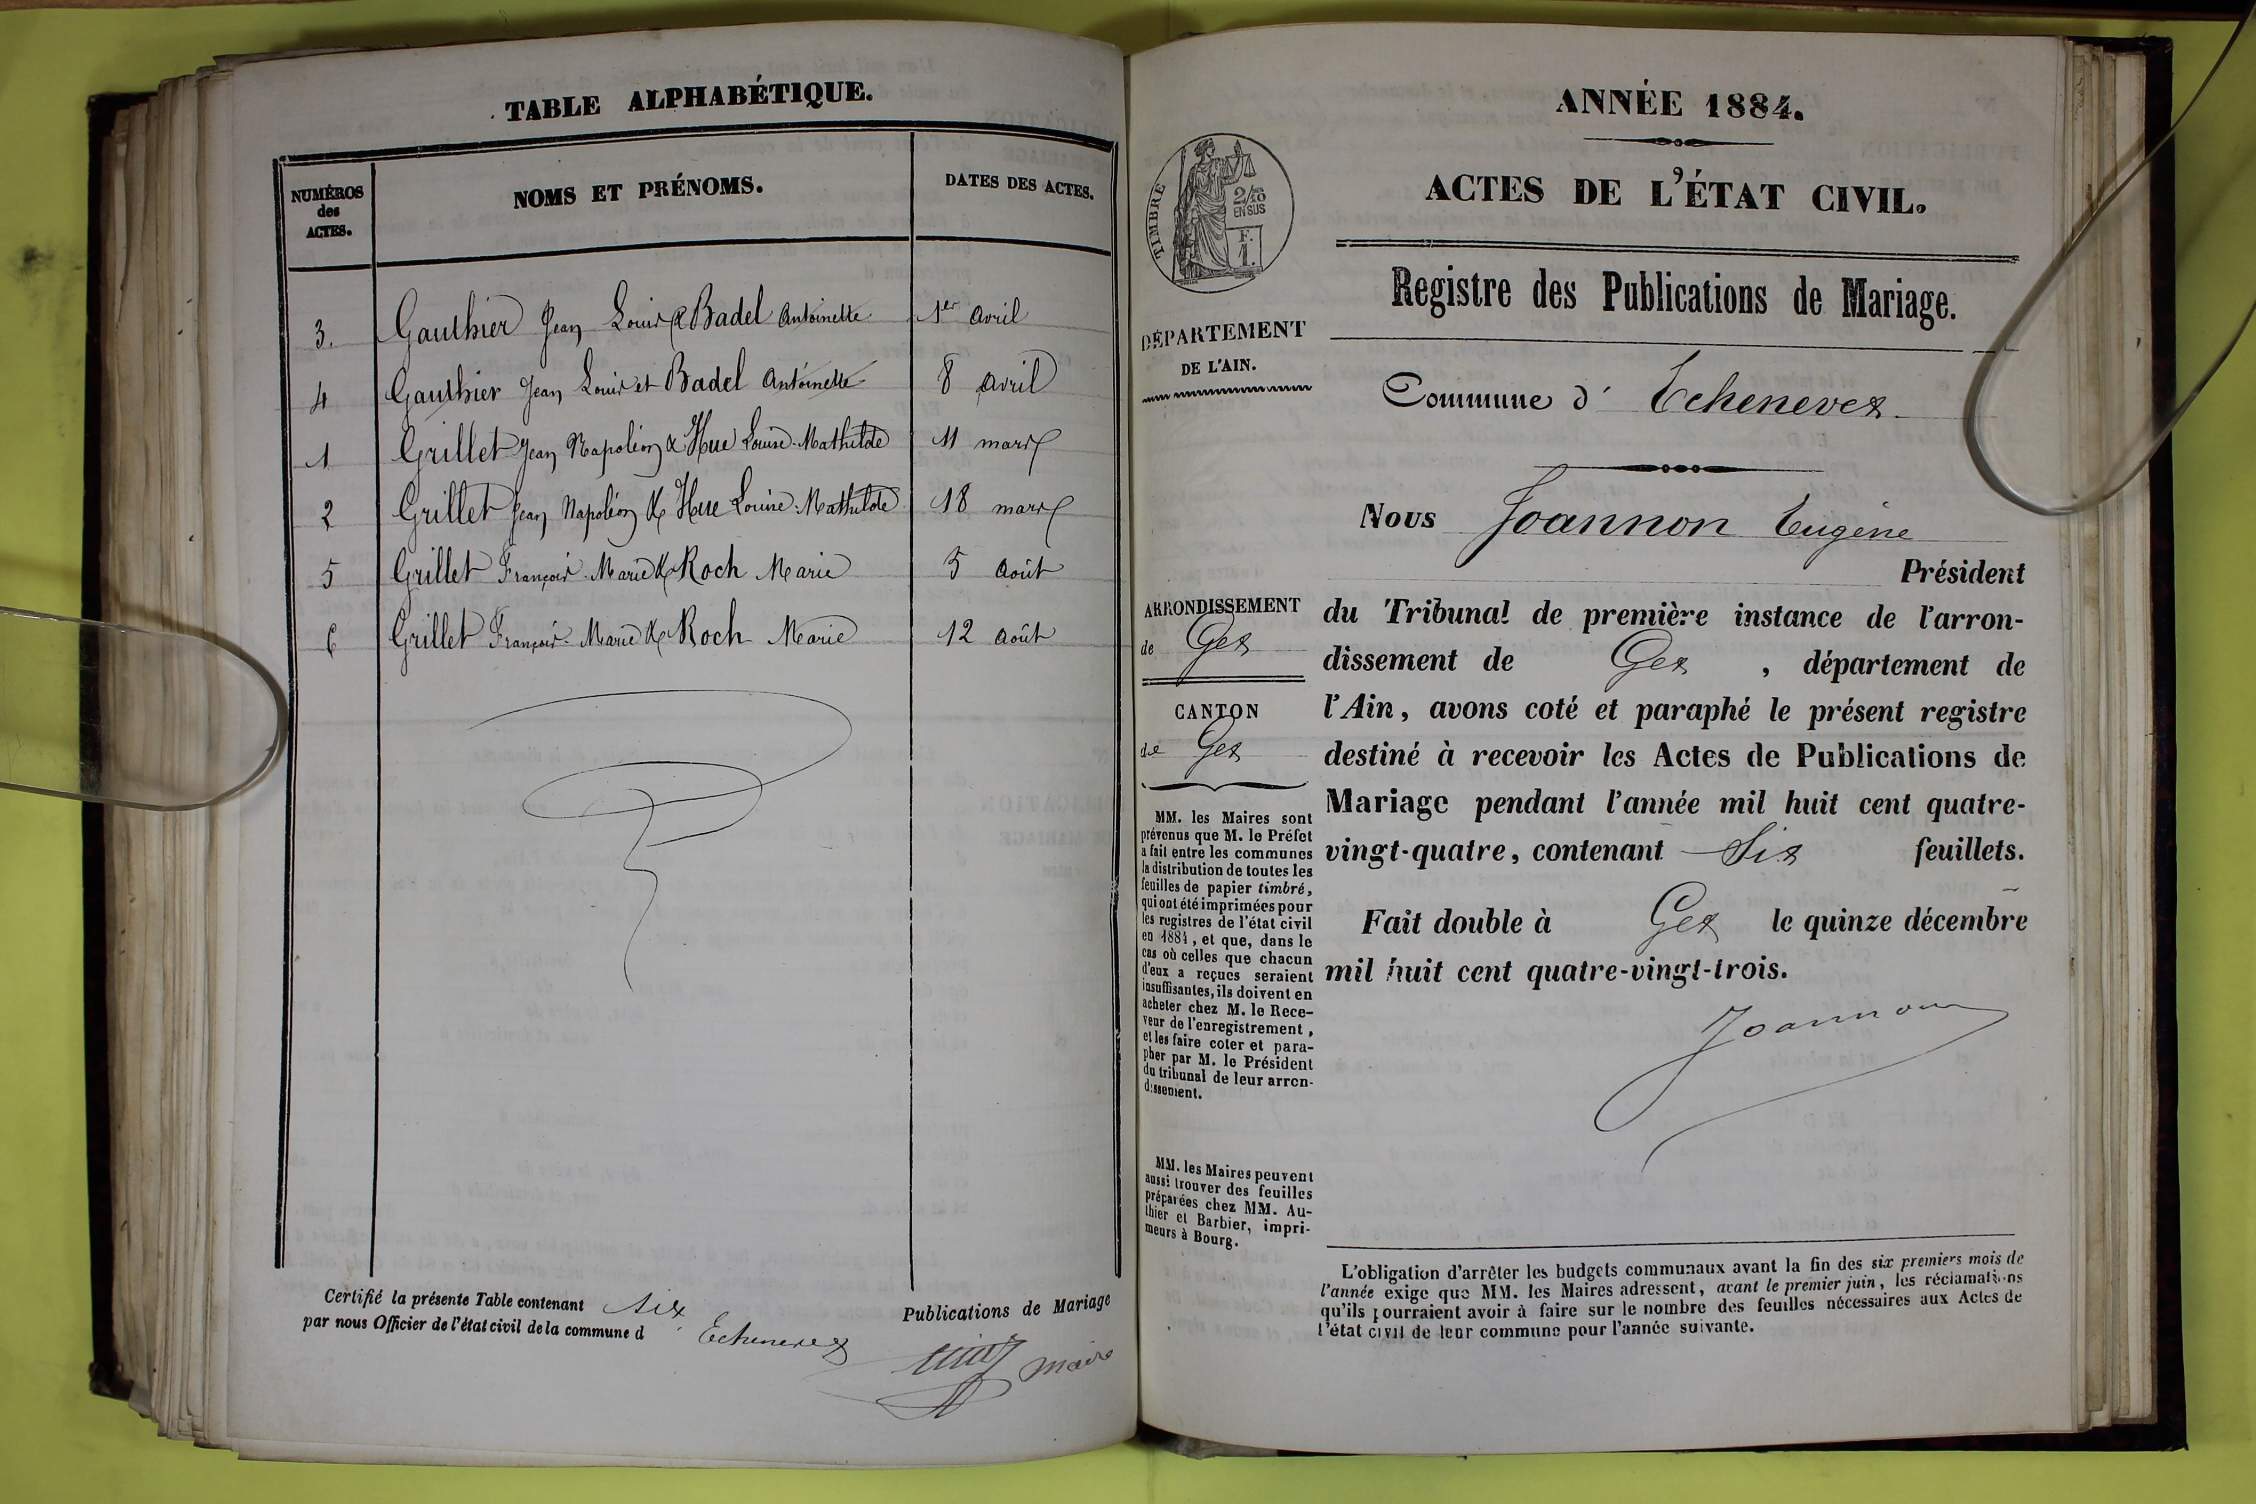 TABLE ALPHABÉTIQUE.
NUMÉROS
des
ACTES.
NOMS ET PRÉNOMS.
DATES DES ACTES.
3. Gauthier Jean Louis & Badel Antoinette 1er avril
4 Gauthier Jean Louis et Badel Antoinette 8 avril
1 Grillet Jean Napoléon & Hue Louise-Mathilde 11 mars
2 Grillet Jean Napoléon & Hue Louise-Mathilde 18 mars
5 Grillet François-Marie & Roch Marie 5 août
6 Grillet François-Marie & Roch Marie 12 août
Certifié la présente Table contenant six Publications de Mariage
par nous Officier de l'état civil de la commune d Echenevex
maire
ANNÉE 1884.
ACTES DE L'ÉTAT CIVIL.
TIMBRE
2/10
EN SUS
F.
1.
Registre des Publications de Mariage.
DÉPARTEMENT
DE L'AIN.
Commune d' Echenevex
Nous Joannon Eugène
Président
du Tribunal de première instance de l'arron-
dissement de Gex, département de
l'Ain, avons coté et paraphé le présent registre
destiné à recevoir les Actes de Publications de
Mariage pendant l'année mil huit cent quatre-
vingt-quatre, contenant Six feuillets.
Fait double à Gex le quinze décembre
mil huit cent quatre-vingt-trois.
Joannon
ARRONDISSEMENT
de Gex
CANTON
de Gex
MM. les Maires sont
prévenus que M. le Préfet
a fait entre les communes
la distribution de toutes les
feuilles de papier timbré,
qui ont été imprimées pour
les registres de l'état civil
en 1884, et que, dans le
cas où celles que chacun
d'eux a reçues seraient
insuffisantes, ils doivent en
acheter chez M. le Rece-
veur de l'enregistrement,
et les faire coter et para-
pher par M. le Président
du tribunal de leur arron-
dissement.
MM. les Maires peuvent
aussi trouver des feuilles
préparées chez MM. Au-
thier et Barbier, impri-
meurs à Bourg.
L'obligation d'arrêter les budgets communaux avant la fin des six premiers mois de
l'année exige que MM. les Maires adressent, avant le premier juin, les réclamations
qu'ils pourraient avoir à faire sur le nombre des feuilles nécessaires aux Actes de
l'état civil de leur commune pour l'année suivante.